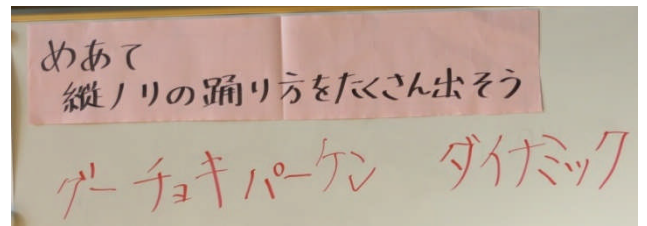 めあて
縦ノリの踊り方をたくさん出そう
グーチョキパーケン　ダイナミック